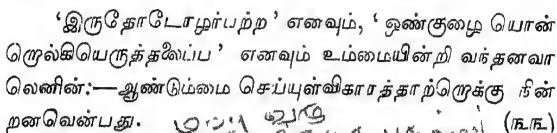 ‘இருதோடோழர்பற்ற’ எனவும், ‘ஒண்குழை யொன்
றொல்கியெருத்தலைப்ப’ எனவும் உம்மையின்றி வந்தனவா
லெனின்:—ஆண்டும்மை செய்யுள்விகாரத்தாற்றொக்கு நின்
றனவென்பது. (௩௩)